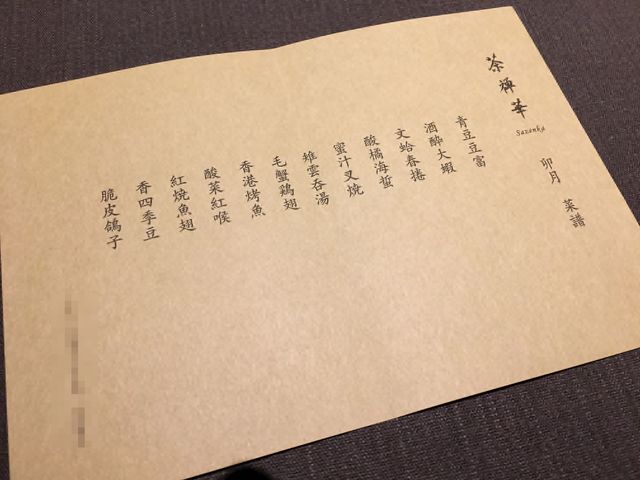 茶禅華
Sazenka
卯月 菜譜
青豆豆富
酒醉大蝦
文蛤春捲
酸橘海蜇
蜜汁叉焼
雉雲呑湯
毛蟹鶏翅
香港烤魚
酸菜紅喉
紅焼魚翅
香四季豆
脆皮鴿子